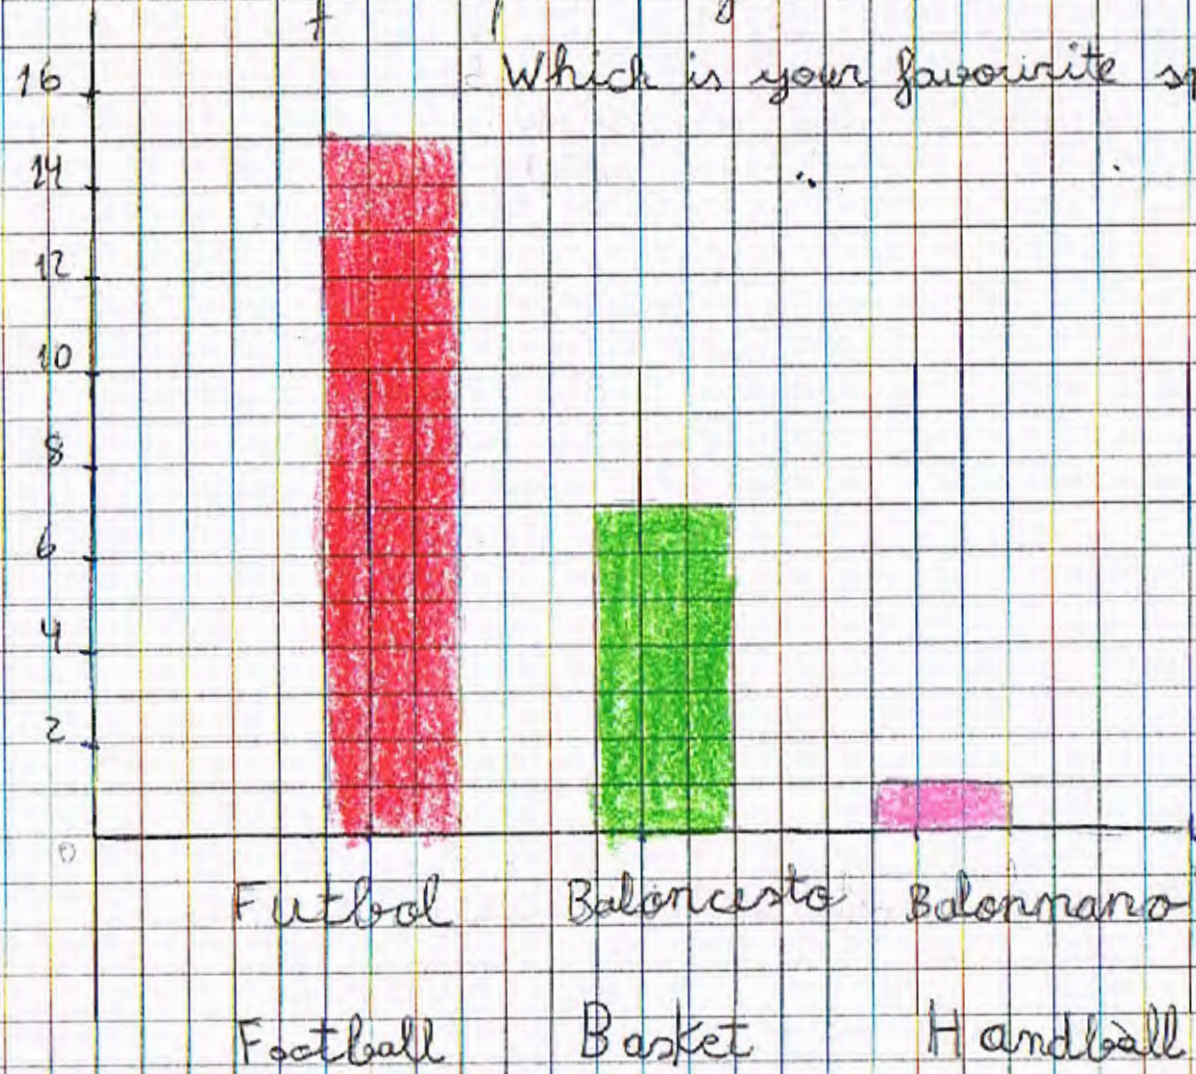 Which is your favourite
16
14
12
10
8
6
4
2
0
Futbol Baloncesto Balonmano
Football Basket Handball